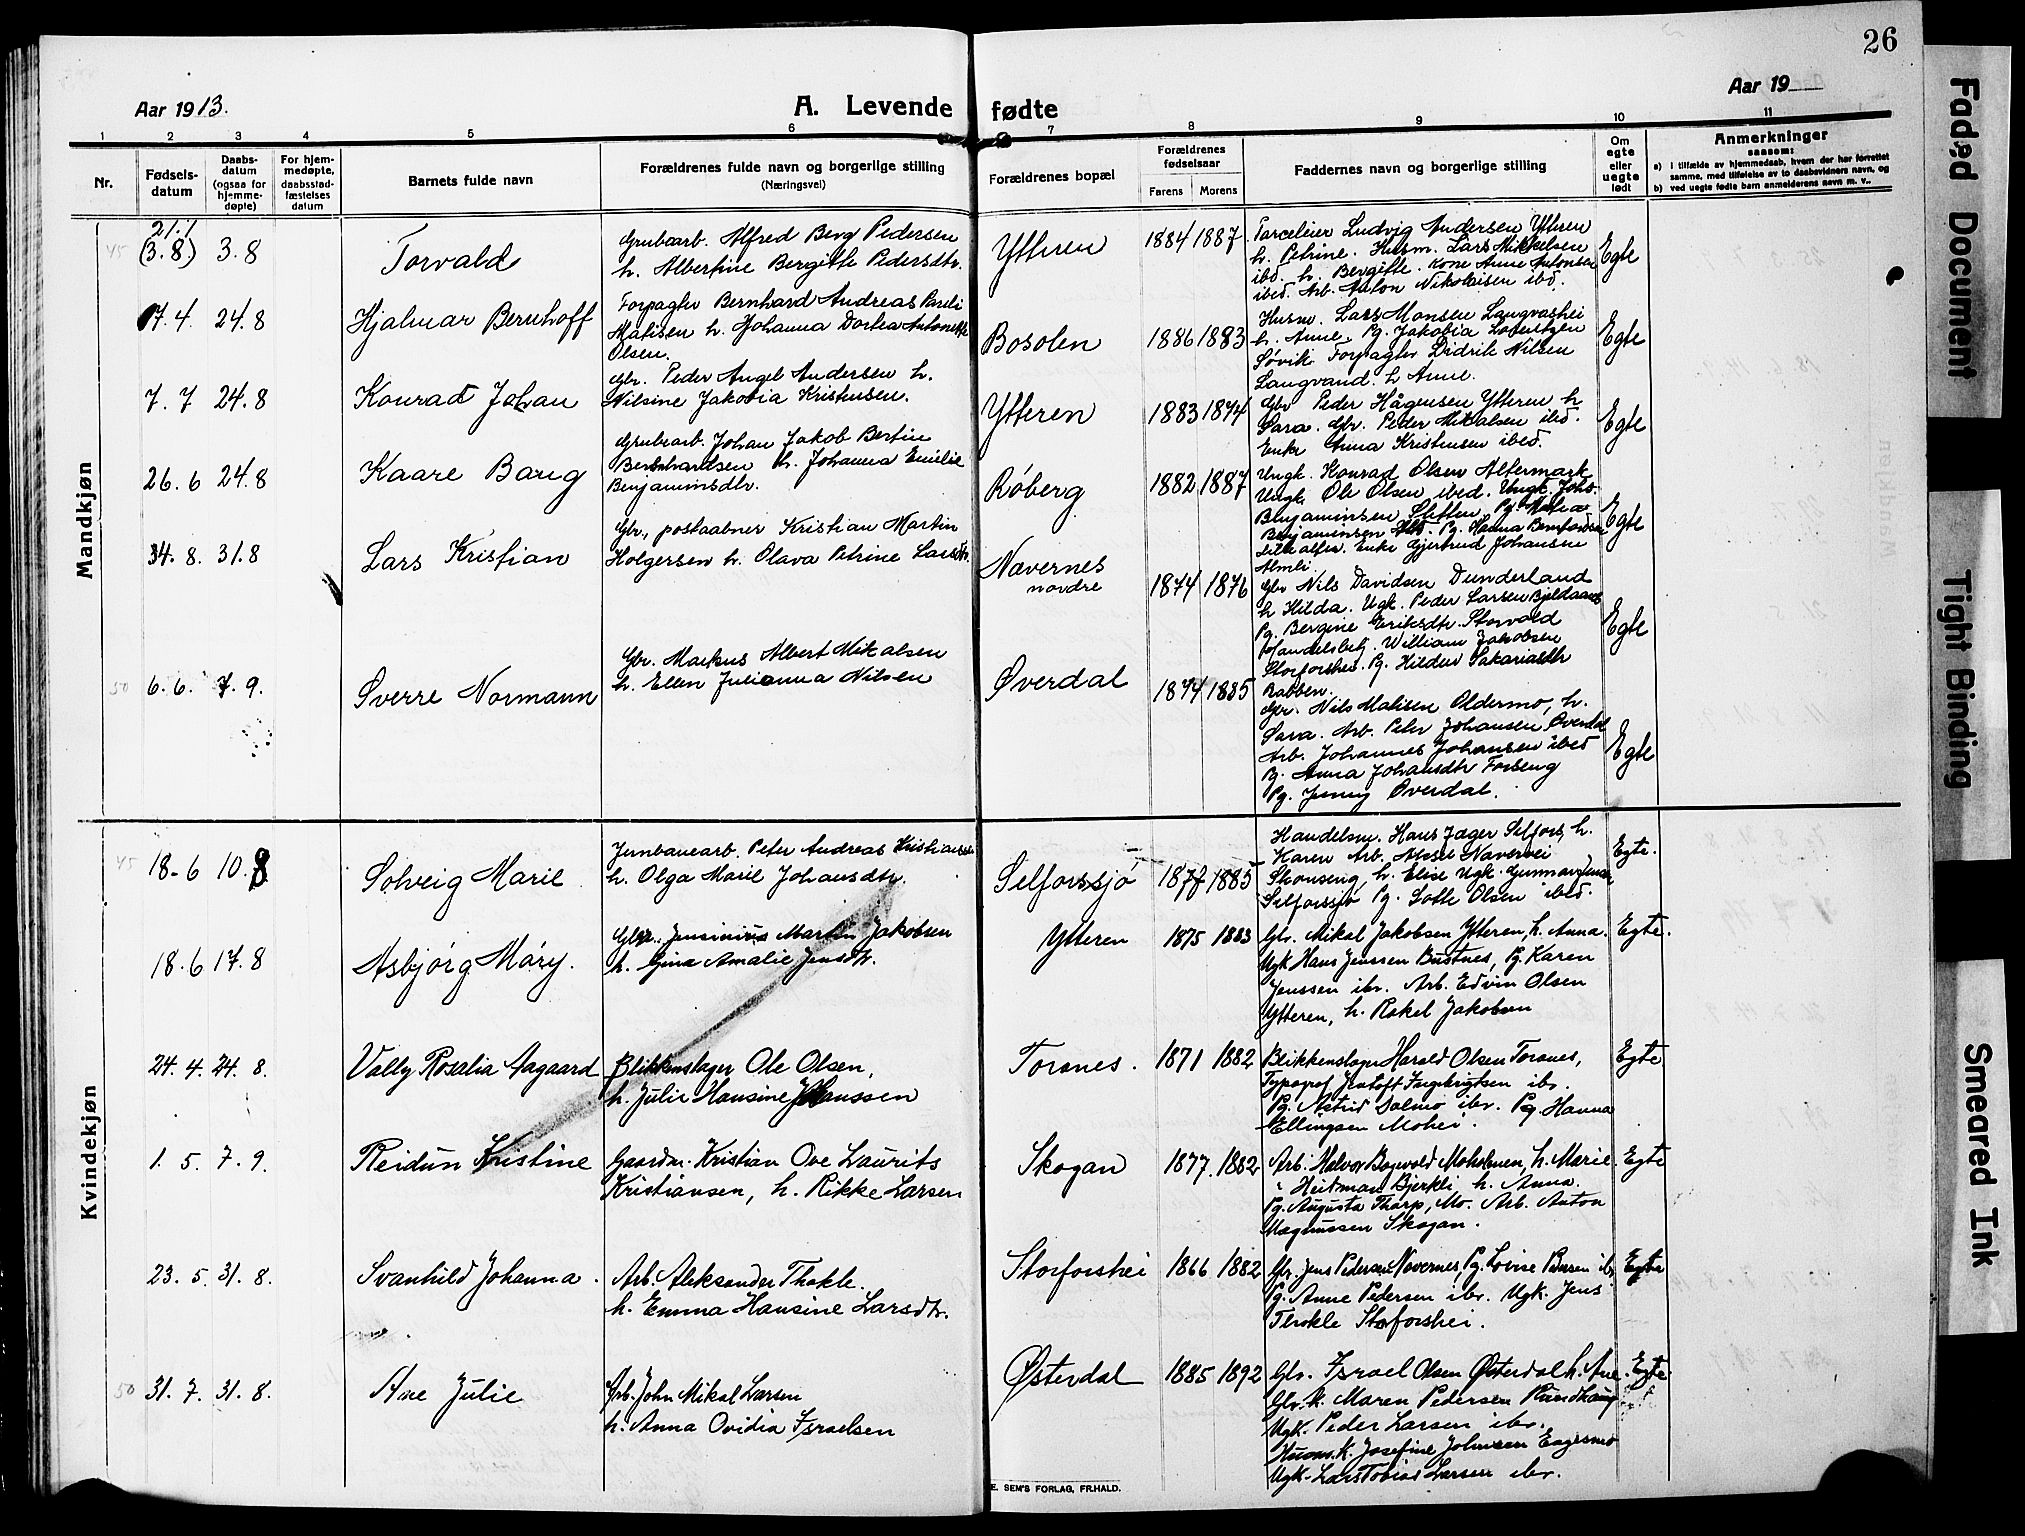 26
Aar 1913.
A. Levende fødte
Aar 19
1 2 3 4 5 6 7 8 9 10 11
Nr.
Fødselsdatum
Daabsdatum (ogsaa for hjemmedøpte)
For hjemmedøpte, daabsstadfæstelses datum
Barnets fulde navn
Forældrenes fulde navn og borgerlige stilling
(Næringsvei)
Forældrenes bopæl
Forældrenes fødselsaar
Farens Morens
Faddernes navn og borgerlige stilling
Om egte eller uegte født
Anmerkninger
saasom:
a) i tilfælde av hjemmedaab, hvem der har forrettet samme, med tilføielse av to daabsvidners navn, og
b) ved uegte fødte barn anmelderens navn m. v..
Mandkjøn
45
21.1
(3.8.) 3.8
Torvald
Grubearb. Alfred Berg Pedersen
h. Albertine Bergitte Pedersdtr.
Ytteren
1884 1887
Parceleier Ludvig Andersen Ytteren
h. Petrine. Husm. Lars Mikkelsen
ibd. h. Bergitte. Kone Anne Antonsen
ibed. Arb. Anton Nikolaisen ibd.
Egte
17.4. 24.8
Hjalmar Bernhoff
Forpagter Bernhard Andreas Pareli
Matisen h. Johanna Dortea Antonette
Olsen.
Bosolen
1886 1883
Husm. Lars Monsen Langvashei
h. Anne. Pg. Jakobia Lorentzen
Søvik. Forpagter Didrik Nilsen
Langvand. h Anne.
Egte
7.7 24.8
Konrad Johan
Gbr. Peder Angel Andersen h.
Nilsine Jakobia Kristensen.
Ytteren
1883 1874
Gbr Peder Hågensen Ytteren h
Sara. Gbr. Peder Mikalsen ibd.
Enke Anna Kristensen ibed.
Egte
26.6 24.8
Kaare Barig
Grubearb. Johan Jakob Bertin
Bernhardsen h. Johanna Emilie
Benjaminsdtr.
Røberg
1882 1887
Ungk. Konrad Olsen Altermark
Ungk. Ole Olsen ibed. Ungk. Johs.
Benjaminsen Sletten Pg. Maria
Benjaminsen ibd. Pg. Hanna
Enke Gjertrud Johansen
Almli.
Egte
34.8. 31.8
Lars Kristian
Gbr, postaabner Kristian Martin
Holgersen h. Olava Petrine Larsdtr.
Nævernes
nordre
1874 1876
Gbr Nils Davidsen Dunderland
h Hilda. Ugk. Peder Larsen Bjeldaanes
Pg. Bergine Eriksdtr. Storvold
Handelsbetj. William Jakobsen
Storforshei. Pg. Hildur Sakariasdtr
Rabben.
Egte
50
6.6. 7.9.
Sverre Normann
Gbr. Markus Albert Mikalsen
h. Ellen Julianna Nilsen
Øverdal
1874 1885
Gbr. Nils Matisen Oldermo, h.
Sara. Arb. Peter Johansen Øverdal
Arb. Johannes Johansen ibed
Pg. Anna Johansdtr Forseng
Pg. Jenny Øverdal.
Egte
Kvindekjøn
45
18-6 10.8
Solveig Marie
Jernbanearb. Peter Andreas Kristiansen
h. Olga Marie Johansdtr.
Selforssjø
1877 1885
Handelsm. Hans Jæger Selfors, h.
Karen Arb. Aksel Naversei
Skonseng, h. Elise Ugk. Gunnar Jensen
Selforssjø Pg. Lotte Olsen ibed.
Egte.
18.6 17.8
Asbjørg Mary.
Gbr. Jensinius Martin Jakobsen
h. Gina Amalie Jensdtr.
Ytteren
1875 1883
Gbr. Mikal Jakobsen Ytteren, h. Anna.
Ugk Hans Jenssen Bustnes, Pg. Karen
Jenssen ibr. Arb. Edvin Olsen
Ytteren, h. Rakel Jakobsen
Egte.
24.4. 24.8.
Vally Rosalia Aagaard
Blikkenslager Ole Olsen,
h. Julie Hansine Hanssen
Toranes.
1871 1882
Blikkenslager Harald Olsen Toranes,
Typograf Jentoft Ingebrigtsen ibr.
Pg. Astrid Dalmo ibr. Pg. Hanna
Ellingsen Mohei.
Egte
1.5. 7.9.
Reidun Kristine
Gaardm. Kristian Ove Laurits
Kristiansen, h. Rikke Larsen
Skogan
1877. 1882
Arb. Halvor Bogevold Moholmen, h. Marie.
" Heitman Bjerkli h. Anna.
Pg. Augusta Thorp, Mo. Arb. Anton
Magnussen Skogan.
Egte
23.5. 31.8.
Svanhild Johanna.
Arb. Aleksander Thokle.
h. Emma Hansine Larsdtr.
Storforshei
1866 1882
Gbr. Jens Pedersen Nævernes, Pg. Lovise Bersen ibr
Pg. Anne Pedersen ibr. Ugk. Jens
Thokle Storforshei.
Egte
50
31.7. 31.8.
Ane Julie
Arb. John Mikal Larsen
h. Anna Ovidia Israelsen
Østerdal
1885 1892
Gbr. Israel Olsen Østerdal h. Ane.
Gbr. k. Maren Pedersen Rundhaug
Ugk. Peder Larsen ibr.
Husm. k. Josefine Johnsen Engesmo
Ugk. Lars Tobias Larsen ibr.
Egte
E. SEM'S FORLAG, FR.HALD.
Faded Document
Tight Binding
Smeared Ink